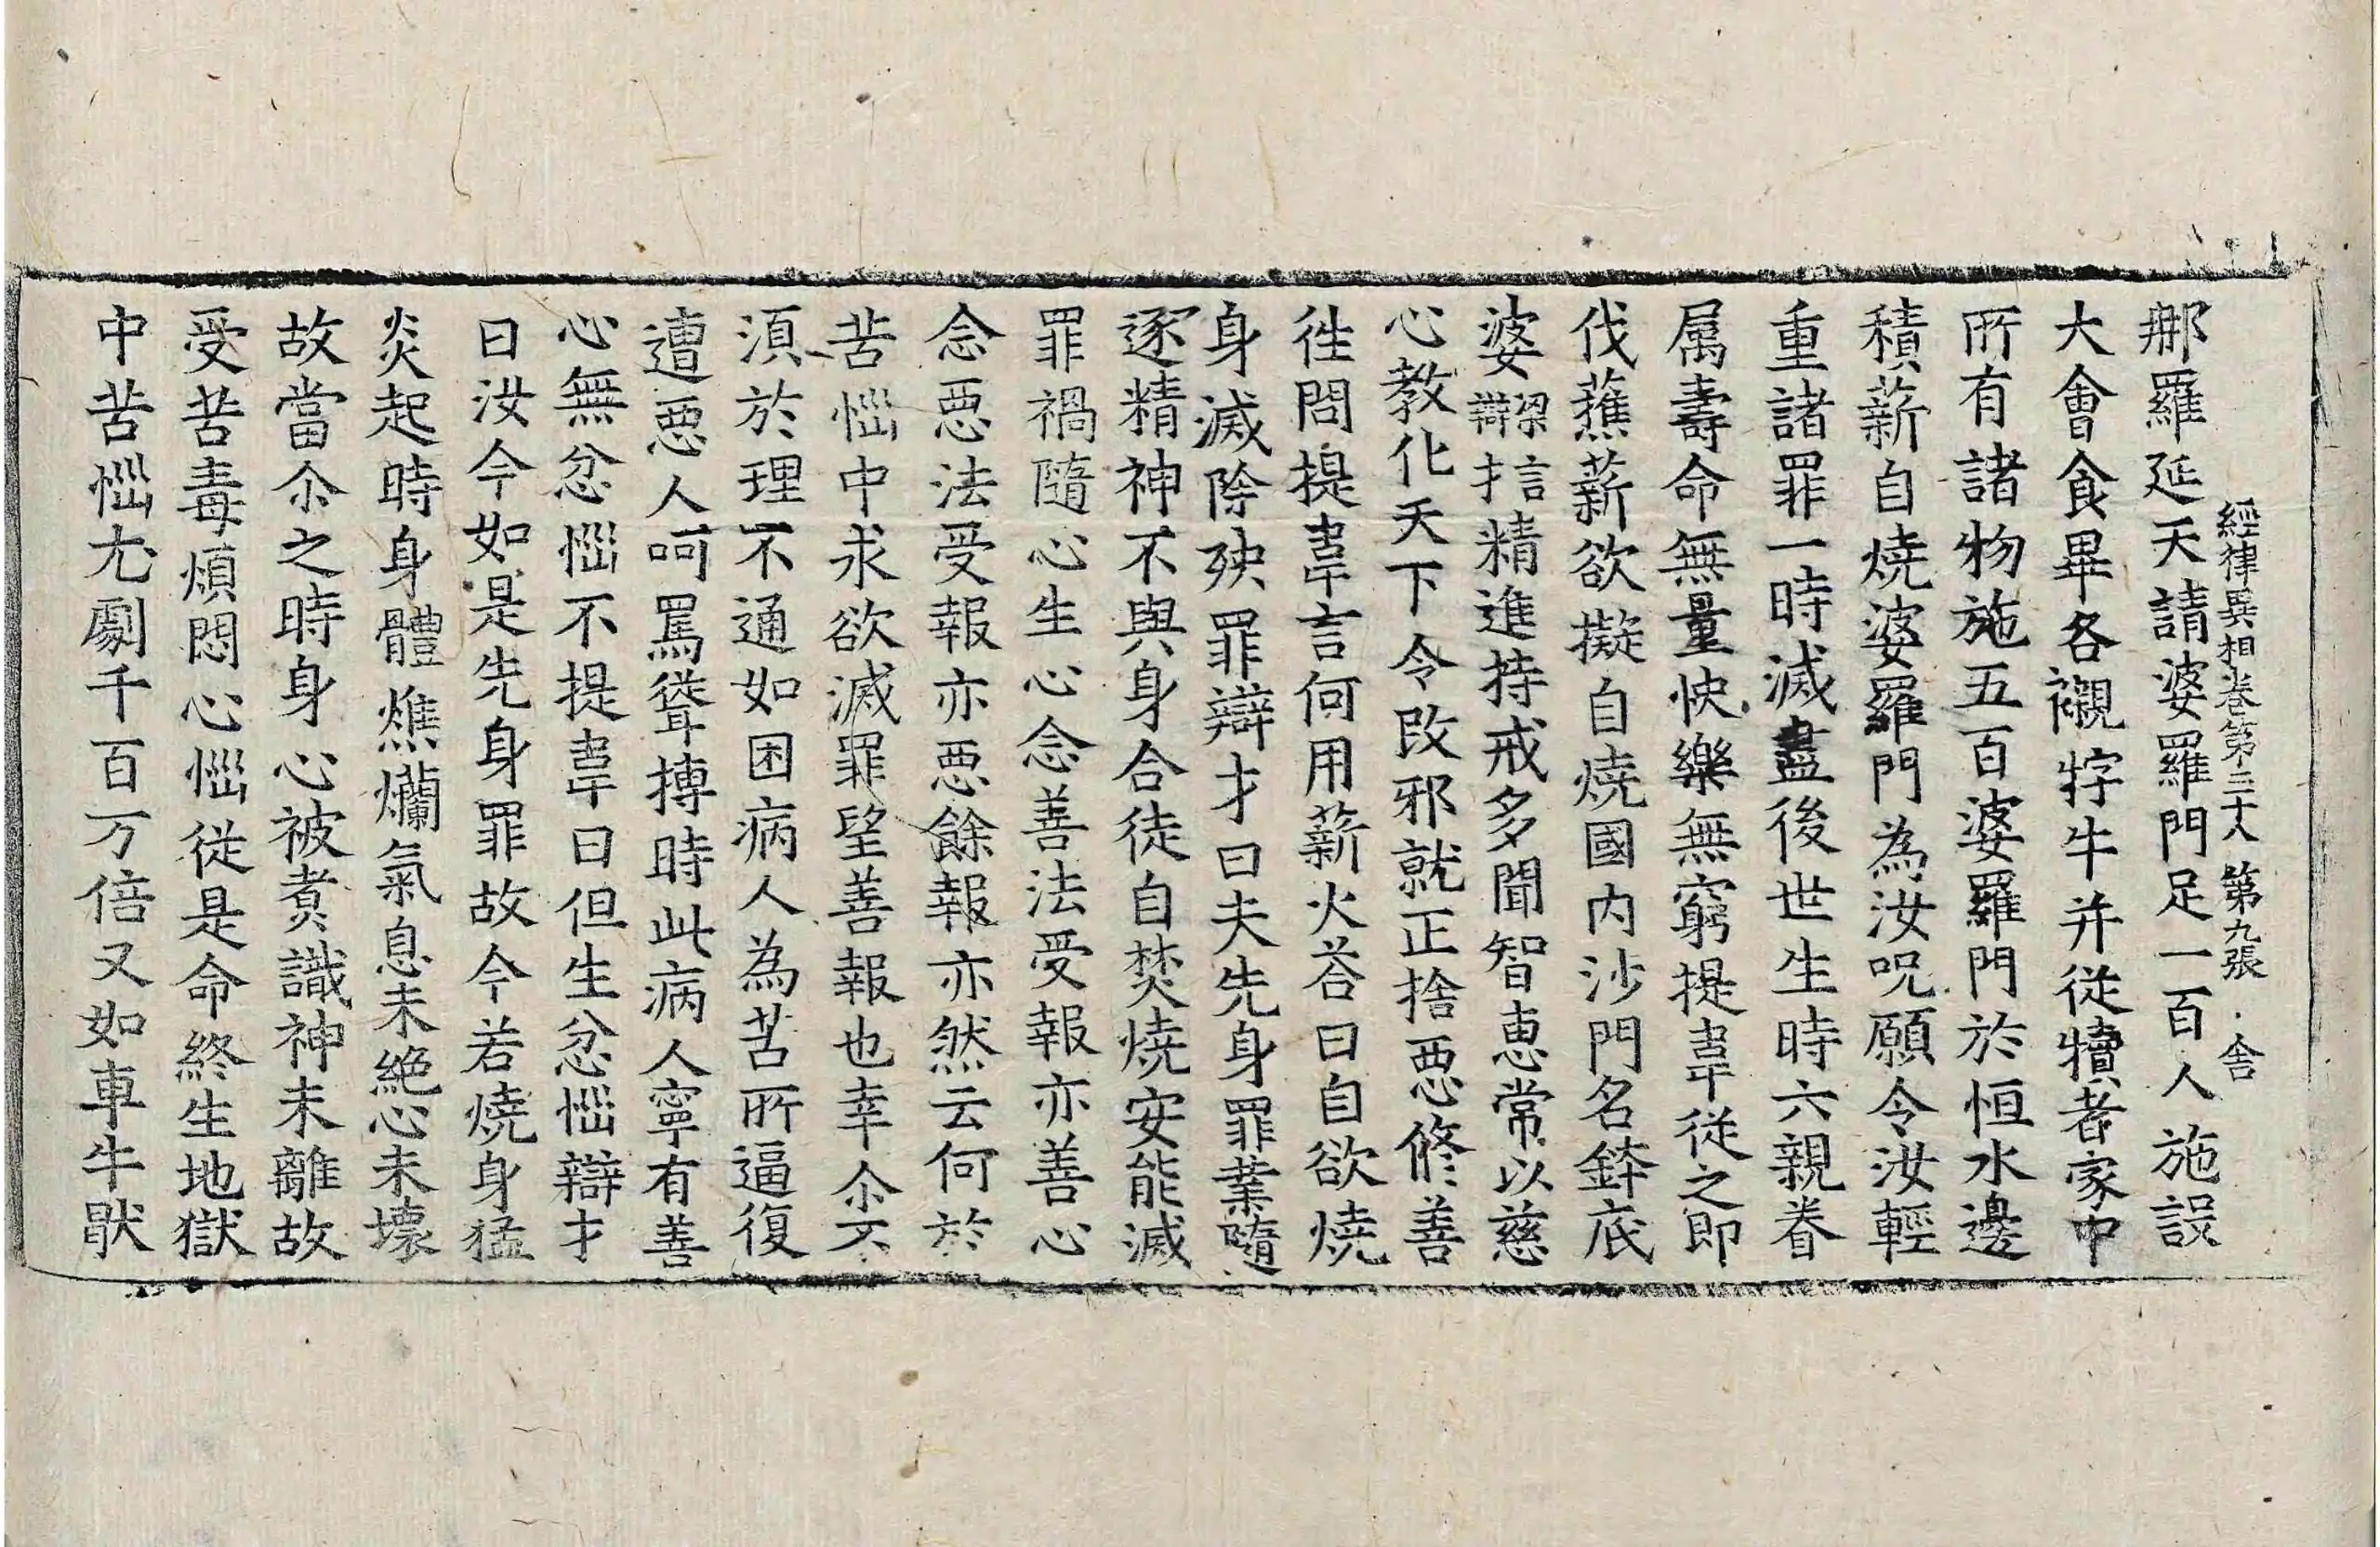 經律異相卷第三十八 第九張 舍
那羅延天請婆羅門足一百人施設
大會食畢各襯牸牛并從犢者家中
所有諸物施五百婆羅門於恒水邊
積薪自燒婆羅門為汝呪願令汝輕
重諸罪一時滅盡後世生時六親眷
属壽命無量快樂無窮提韋從之即
伐蕉薪欲擬自燒國內沙門名鉢底
婆梁言辯才精進持戒多聞智恵常以慈
心教化天下令改邪就正捨惡修善
徃問提韋言何用薪火荅曰自欲燒
身滅除殃罪辯才曰夫先身罪業隨
逐精神不與身合徒自焚燒安能滅
罪禍隨心生心念善法受報亦善心
念惡法受報亦惡餘報亦然云何於
苦惱中求欲滅罪望善報也幸尒不
湏於理不通如困病人為苦所逼復
遭惡人呵罵聳搏時此病人寧有善
心無忿惱不提韋曰但生忿惱辯才
曰汝今如是先身罪故今若燒身猛
炎起時身體燋爛氣息未絕心未壞
故當尒之時身心被煮識神未離故
受苦毒煩悶心惱從是命終生地獄
中苦惱尤劇千百万倍又如車牛猒